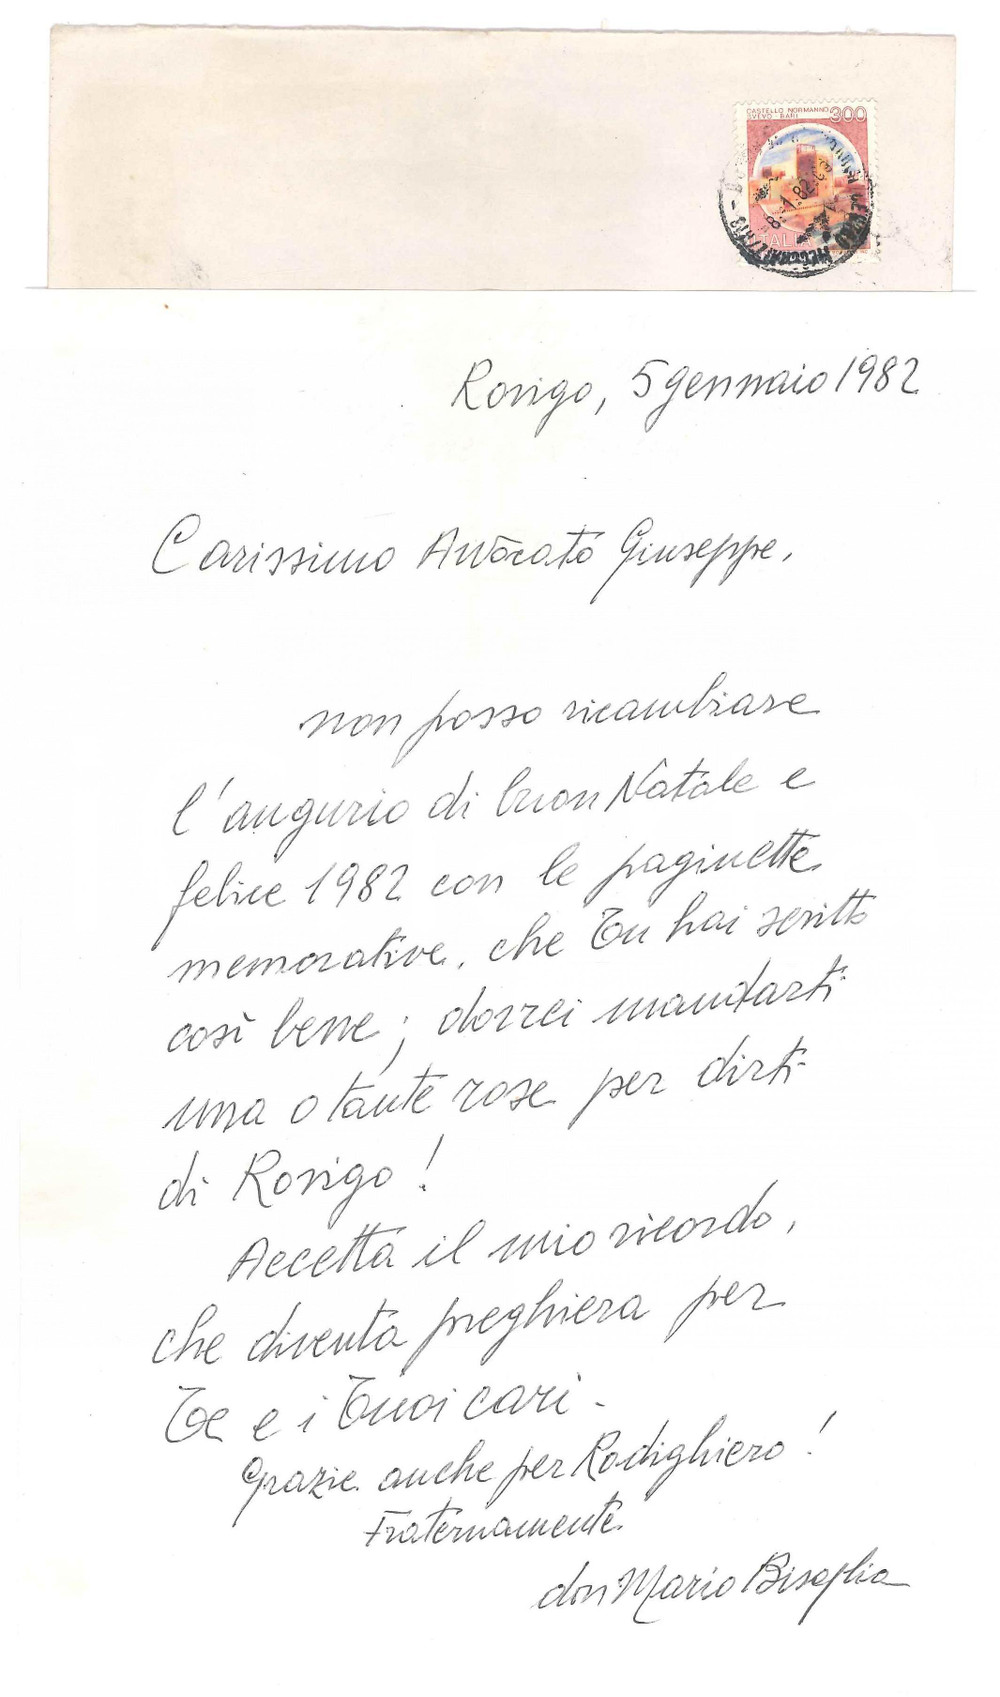 CASTELLO NORMANNO
SVEVO BARI 300
ITALIA
Rovigo, 5 gennaio 1982
Carissimo Avvocato Giuseppe,
non posso ricambiare
l'augurio di buon Natale e
felice 1982 con le paginette
memorative, che Tu hai scritto
così bene; dovrei mandarti
una o tante rose per dirti
di Rovigo!
Accetta il mio ricordo,
che diventa preghiera per
Te e i Tuoi cari -
Grazie anche per Rodighiero!
Fraternamente
don Mario Bisaglia